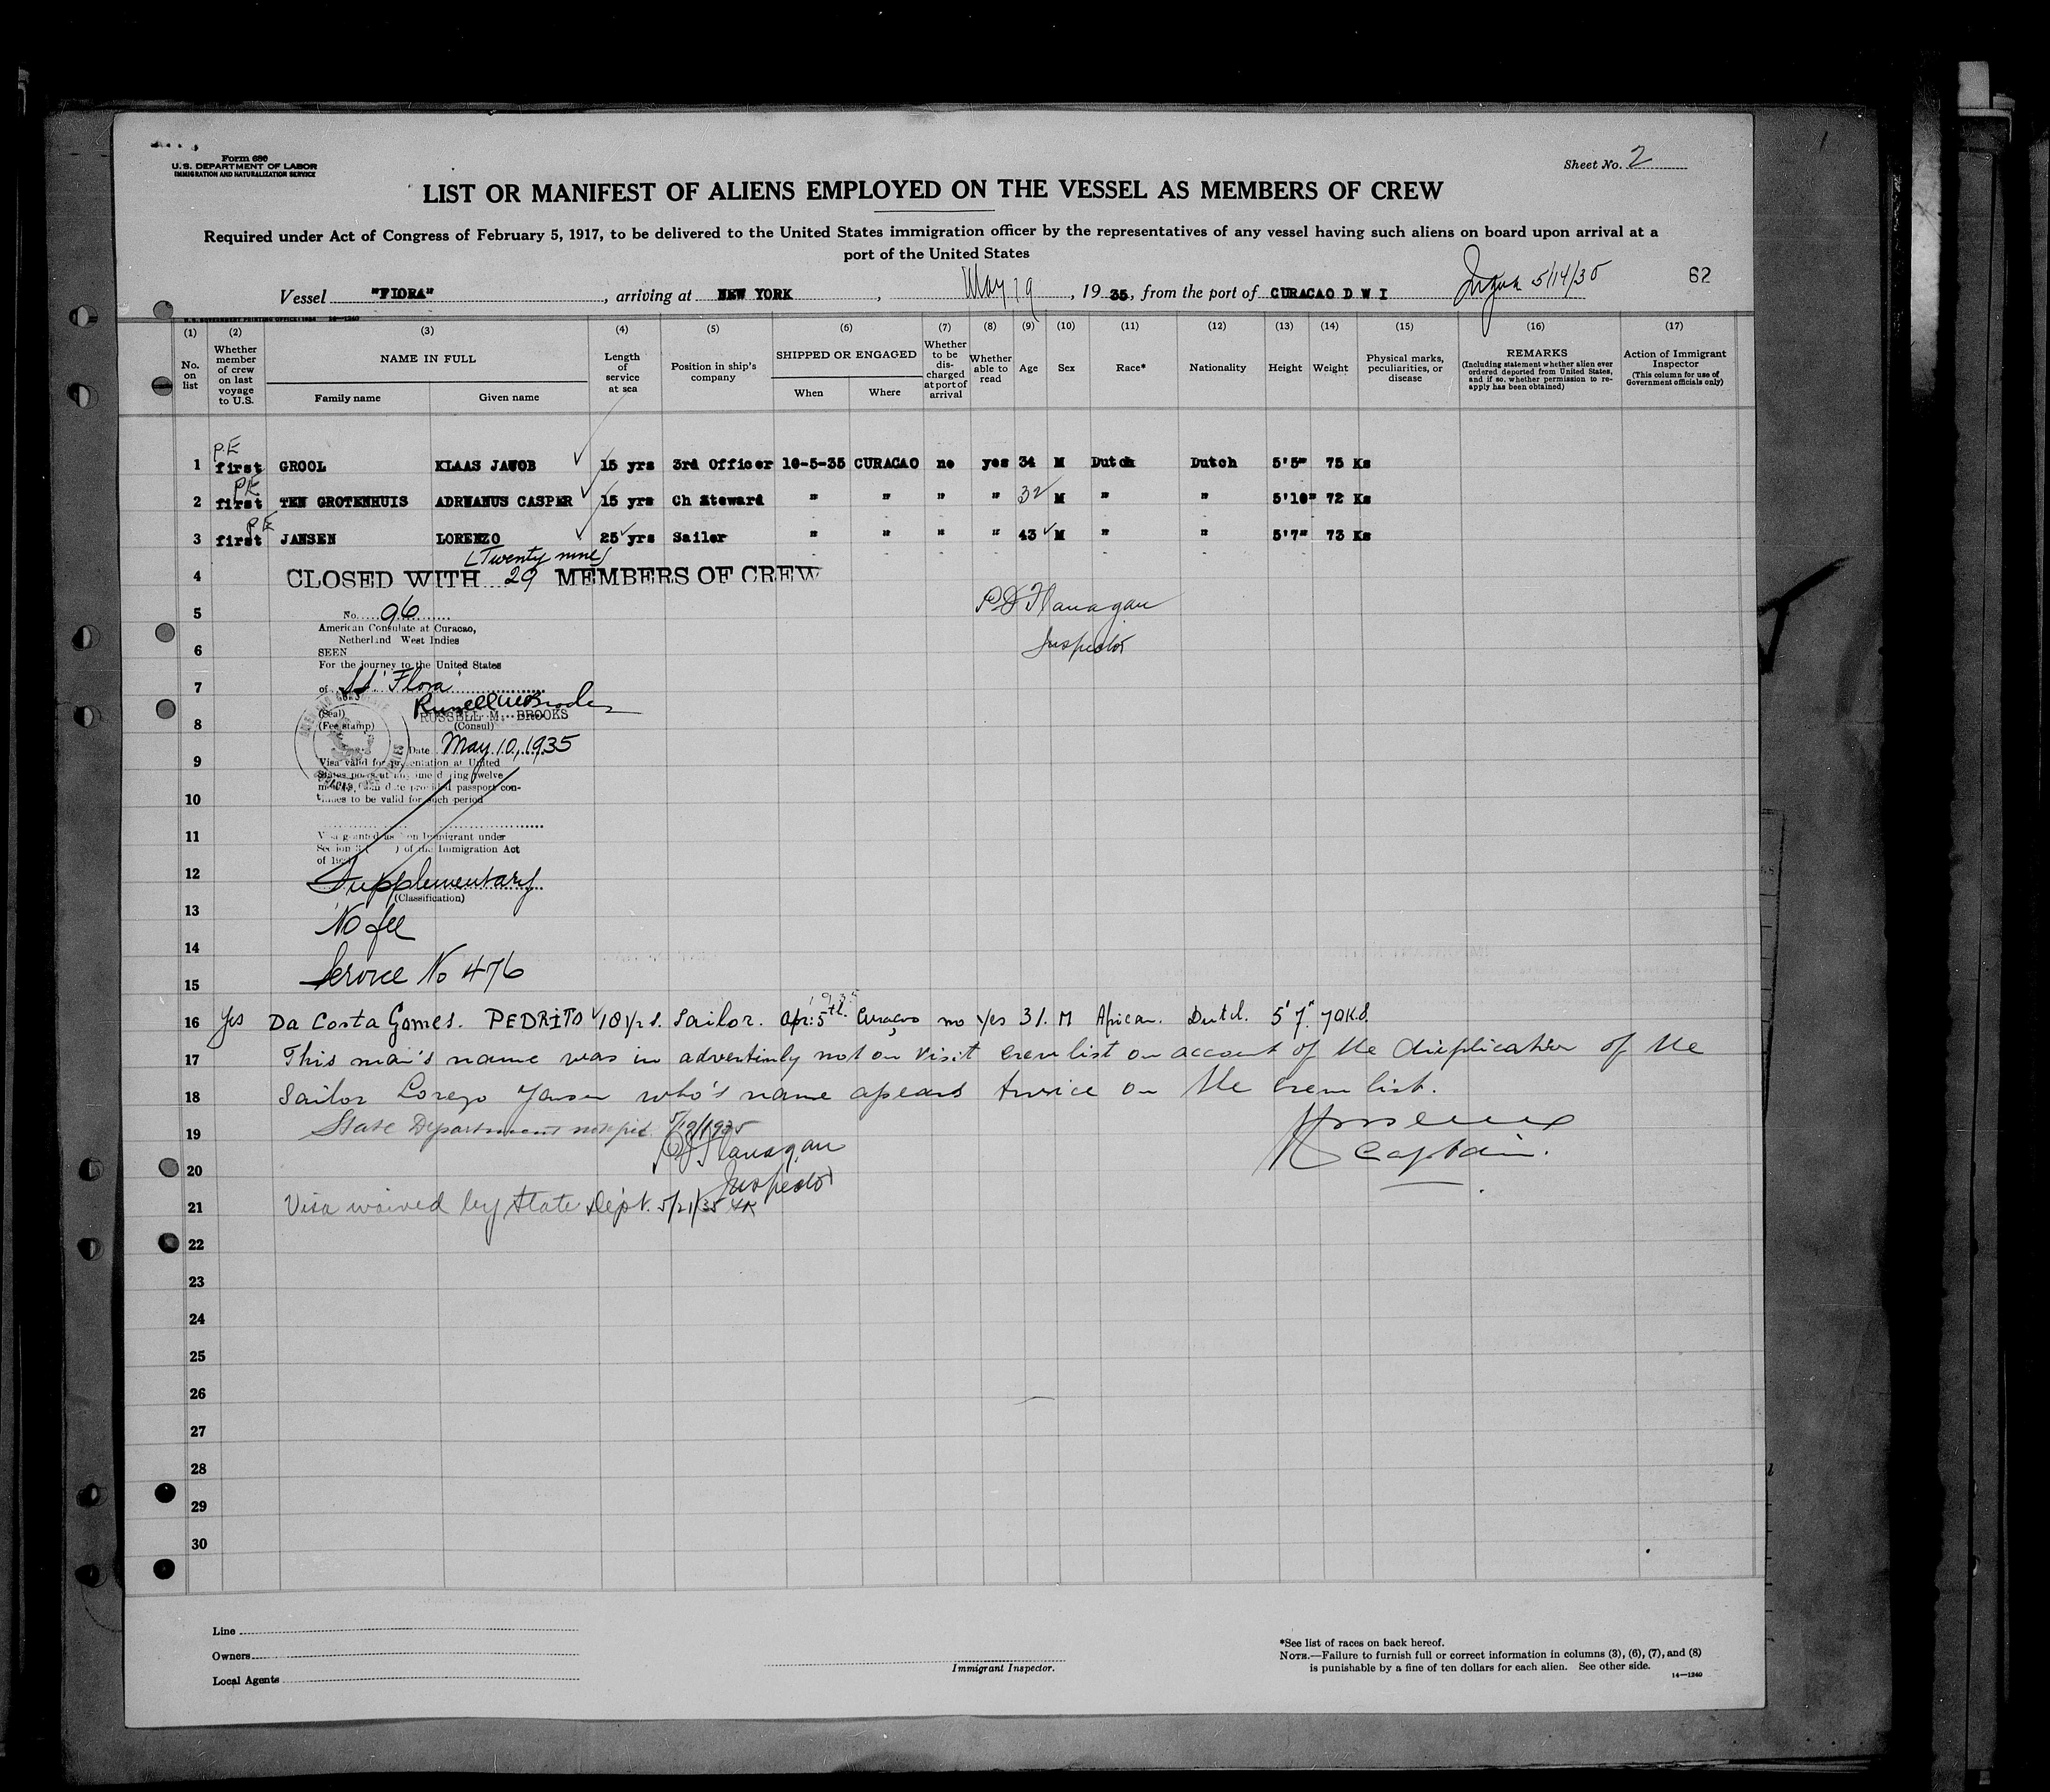 Form 680
U. S. DEPARTMENT OF LABOR
IMMIGRATION AND NATURALIZATION SERVICE
Sheet No. 2
LIST OR MANIFEST OF ALIENS EMPLOYED ON THE VESSEL AS MEMBERS OF CREW
Required under Act of Congress of February 5, 1917, to be delivered to the United States immigration officer by the representatives of any vessel having such aliens on board upon arrival at a
port of the United States
Vessel "FLORA", arriving at NEW YORK, May 19, 1935, from the port of CURACAO D W I 5/14/35 62
U. S. GOVERNMENT PRINTING OFFICE: 1934 14—1240
(1) (2) (3) (4) (5) (6) (7) (8) (9) (10) (11) (12) (13) (14) (15) (16) (17)
No. on list
Whether member of crew on last voyage to U.S.
NAME IN FULL
Family name Given name
Length of service at sea
Position in ship's company
SHIPPED OR ENGAGED
When Where
Whether to be discharged at port of arrival
Whether able to read
Age Sex Race* Nationality Height Weight
Physical marks, peculiarities, or disease
REMARKS
(Including statement whether alien ever ordered deported from United States, and if so, whether permission to reapply has been obtained)
Action of Immigrant Inspector
(This column for use of Government officials only)
P.E
1 first GROOL KLAAS JACOB 15 yrs 3rd Officer 10-5-35 CURACAO no yes 34 M Dutch Dutch 5'5" 75 Ks
PE
2 first TEN GROTENHUIS ADRIANUS CASPER 15 yrs Ch Steward " " " " 32 M " " 5'10" 72 Ks
P.E
3 first JANSEN LORENZO 25 yrs Sailor " " " " 43 M " " 5'7" 73 Ks
(Twenty nine)
4 CLOSED WITH 29 MEMBERS OF CREW
5 No. 96 P D Flanagan
American Consulate at Curacao,
Netherland West Indies
6 SEEN Inspector
For the journey to the United States
7 of SS "Flora"
Russell M Brooks
(Seal) RUSSELL M. BROOKS
8 (Fee stamp) (Consul)
Date May 10, 1935
9 Visa valid for presentation at United
States ports at any time during twelve
months from date provided passport con-
10 tinues to be valid for such period
11 Visa granted as Non Immigrant under
Section 3 ( ) of the Immigration Act
of 1924
12 Supplementary
(Classification)
13 No fee
14
15 Service No 476
16 Yes Da Costa Gomes. PEDRITO 10 yrs. Sailor. Apr: 5th. 1935 Curaçao no Yes 31. M African. Dutch. 5'7" 70 K.S.
17 This man's name was in advertinly not on visit crew list on account of the duplication of the
18 Sailor Lorezo Jansen who's name apears twice on the crew list.
19 State Department notified 5/19/1935
P D Flanagan Captain.
20 Inspector
21 Visa waived by State Dep't. 5/21/35
22
23
24
25
26
27
28
29
30
Line
Owners
Local Agents
Immigrant Inspector.
*See list of races on back hereof.
NOTE.—Failure to furnish full or correct information in columns (3), (6), (7), and (8)
is punishable by a fine of ten dollars for each alien. See other side.
14—1240